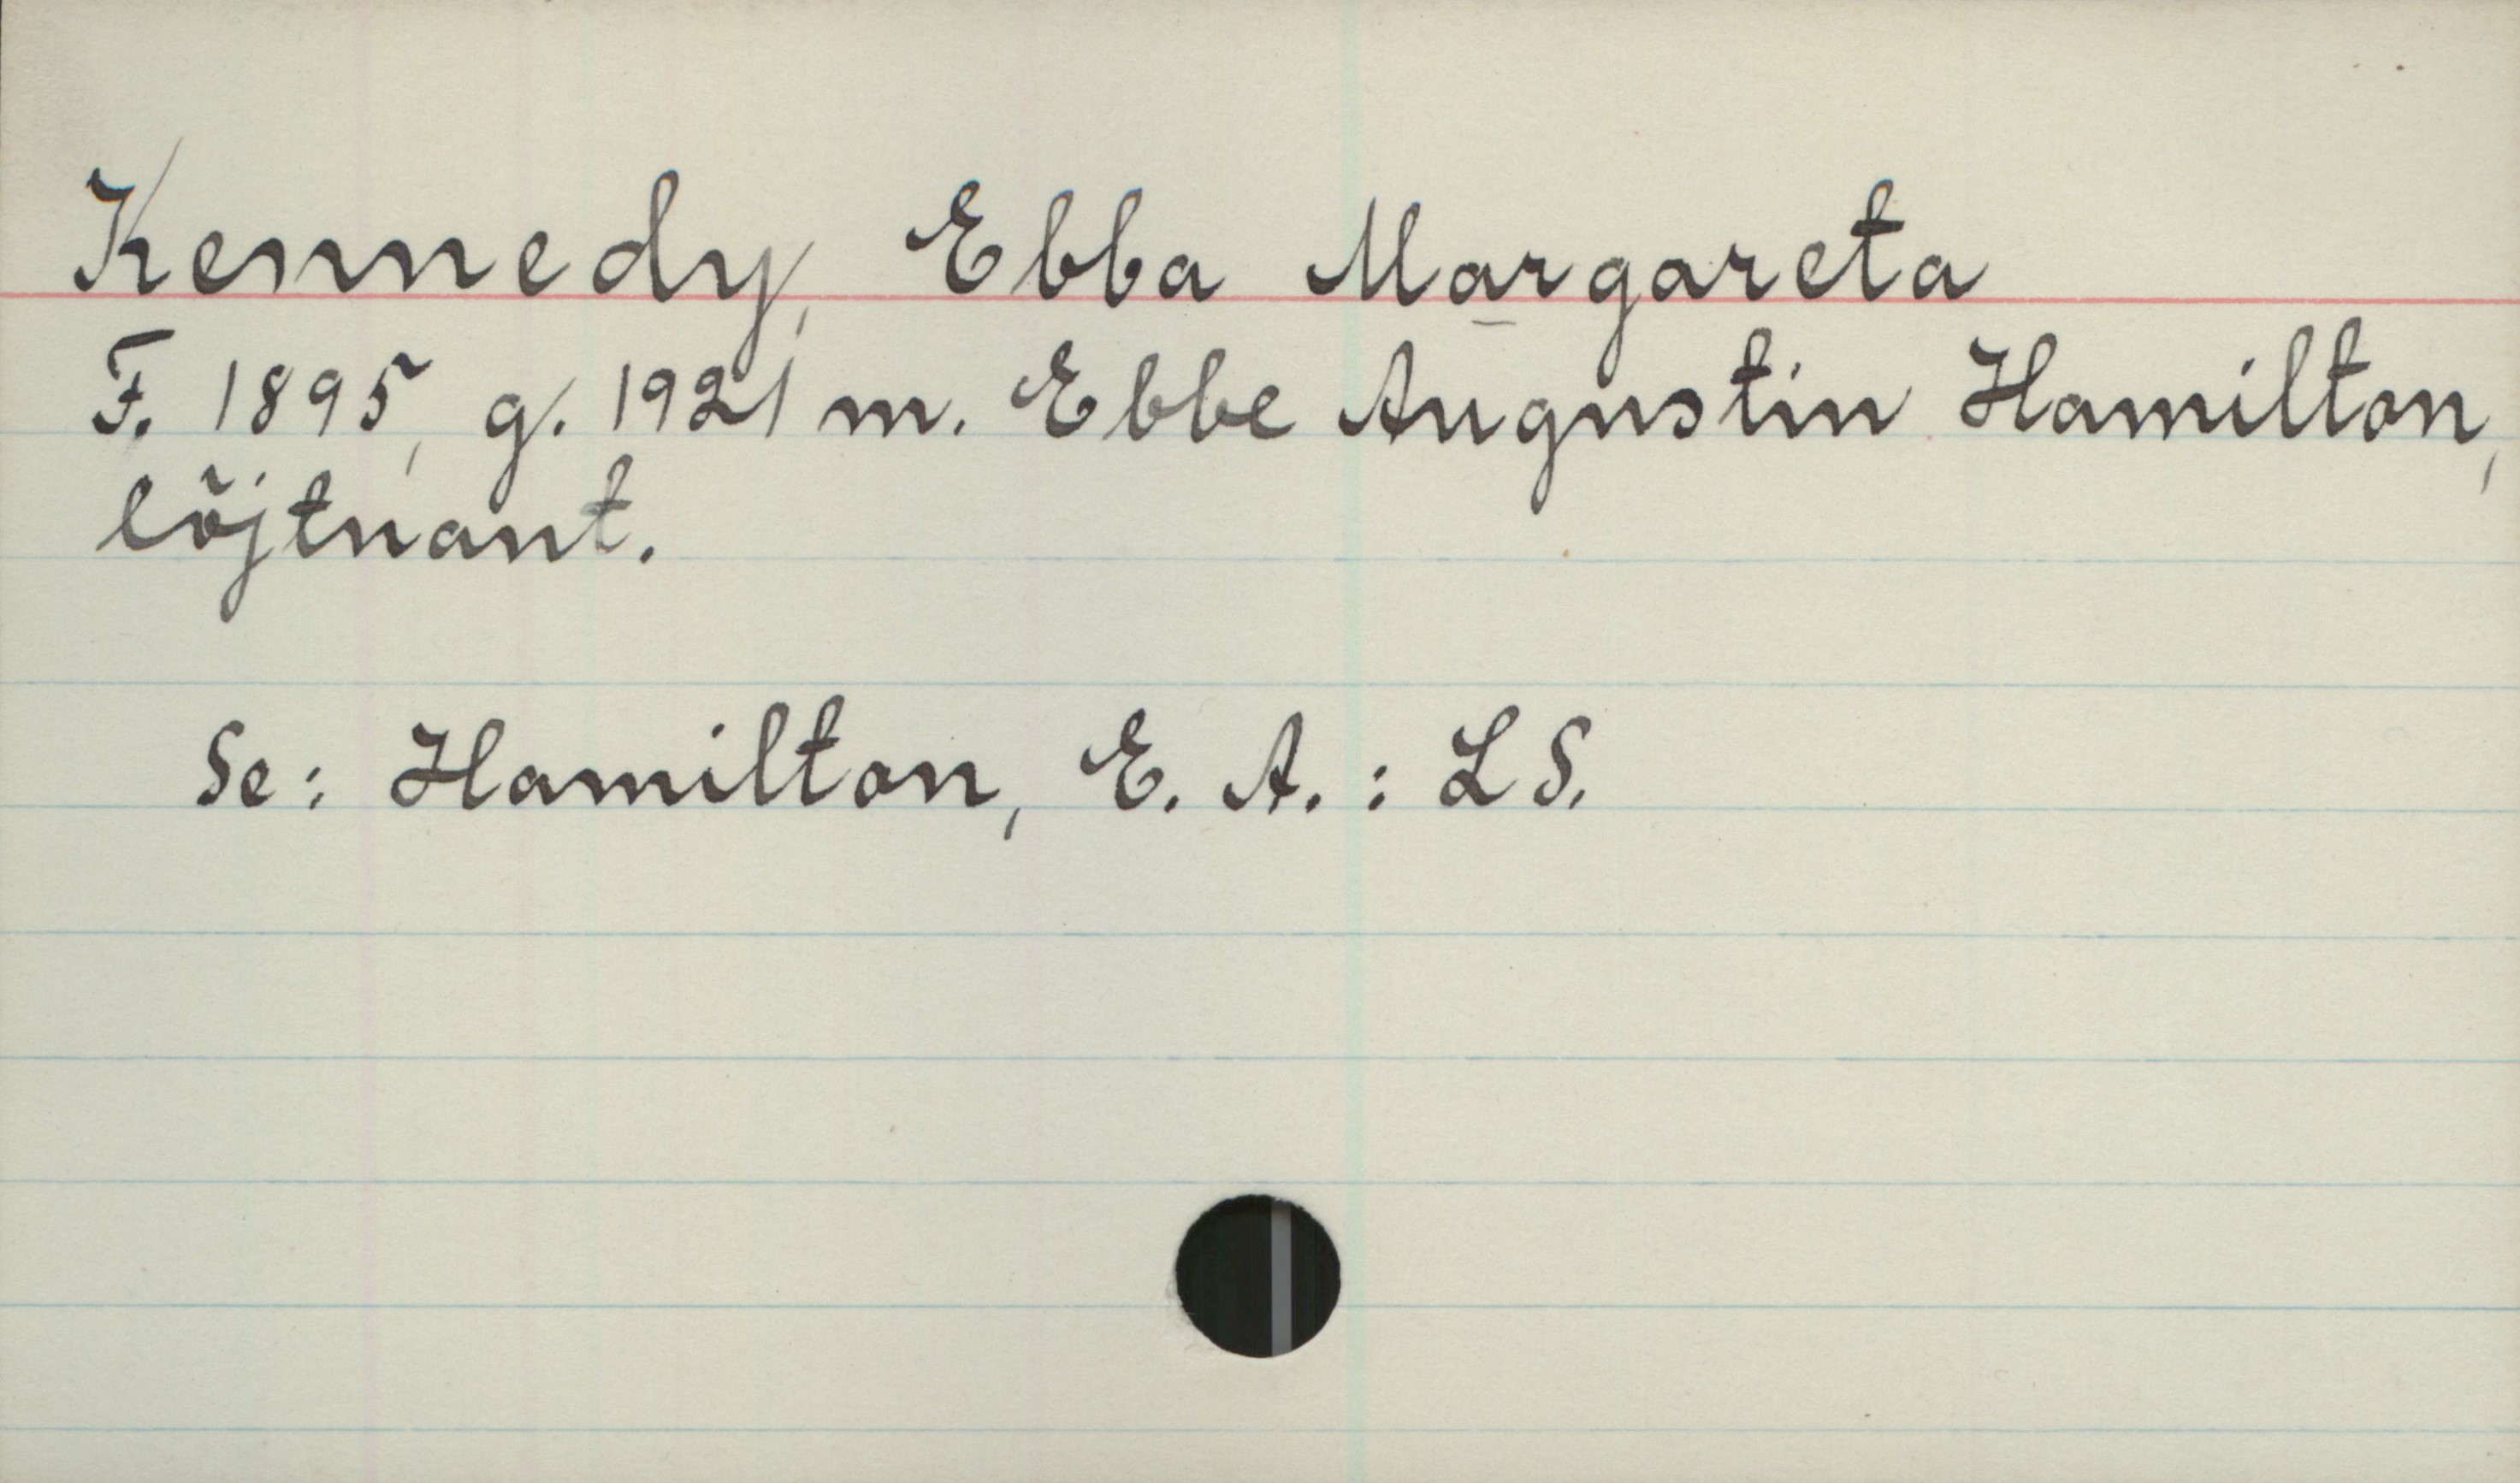 Kennedy, Ebba Margareta
F. 1895, g. 1921 m. Ebbe Augustin Hamilton,
löjtnant.
Se: Hamilton, E. A. : LS.